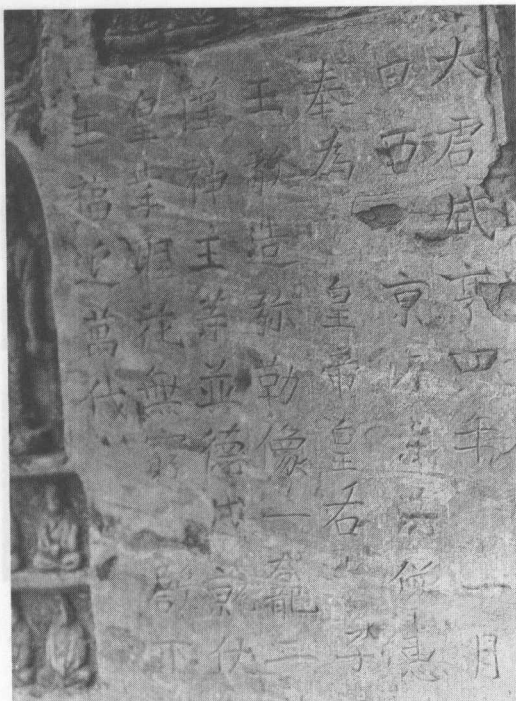 大唐咸亨四年一月
日西京法寺惠
奉為皇帝皇后子
王敬造弥勒像一龕二
神王等並德成就伏
皇花無窮殿下
王福萬代